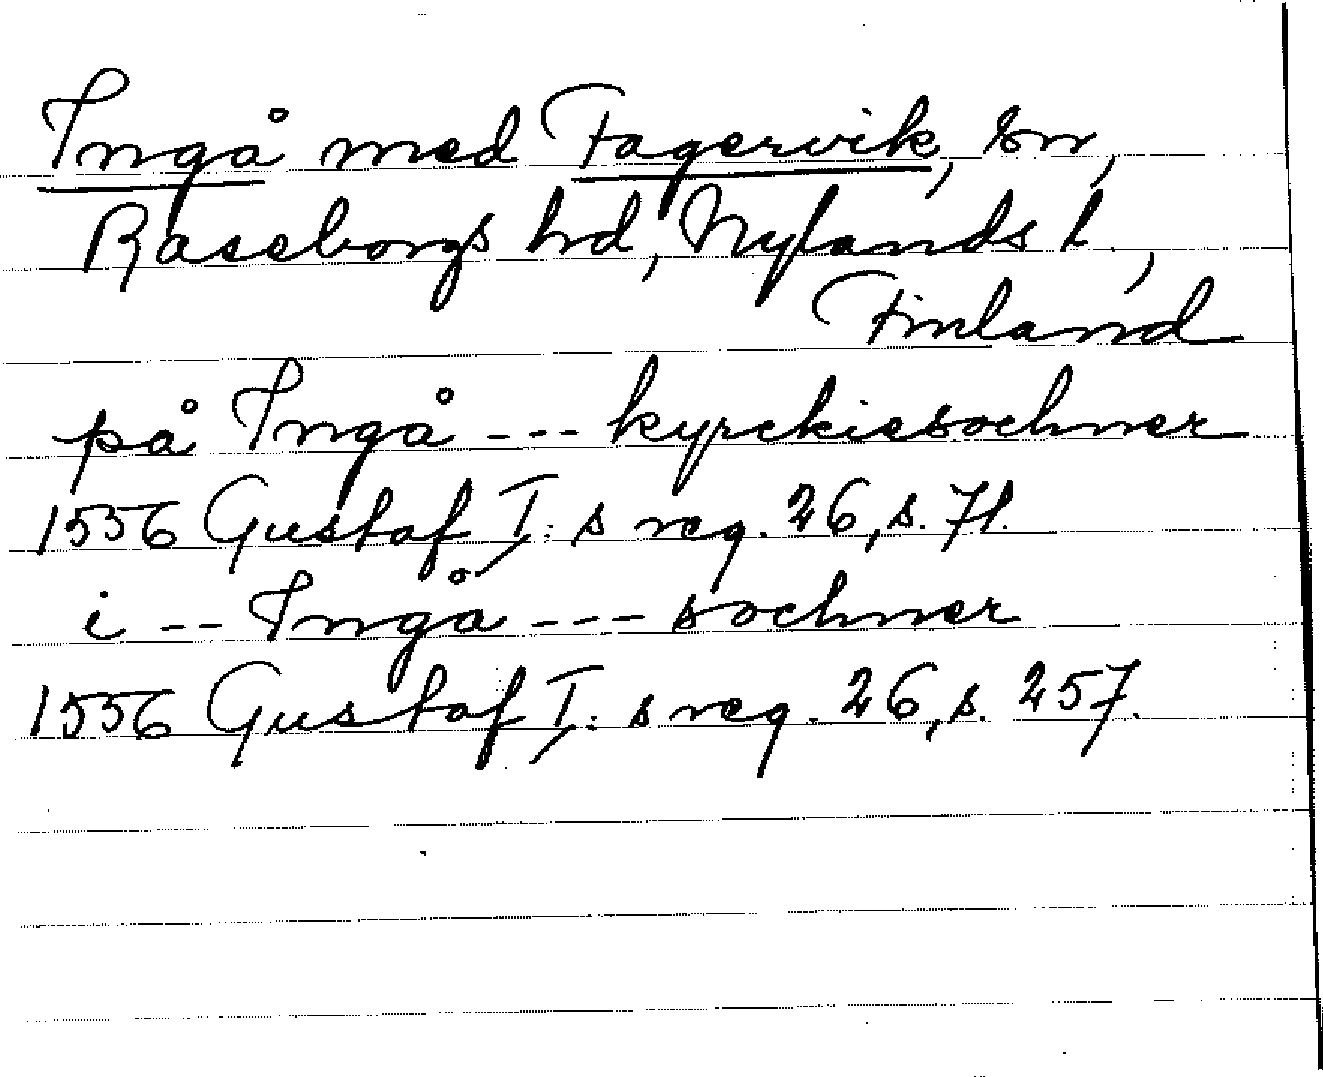 Ingå med Fagervik, sn,
Raseborgs hrd, Nylands l.,
Finland
på Ingå --- kyrckiesochner
1556 Gustaf I: s reg. 26, s. 71.
i -- Ingå --- sochner
1556 Gustaf I: s reg. 26, s. 257.